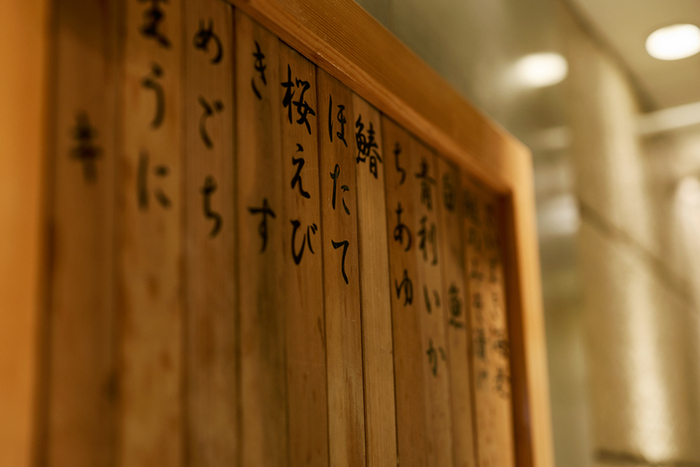 白魚
青利いか
ちあゆ
鰆
ほたて
桜えび
きす
めごち
生うに